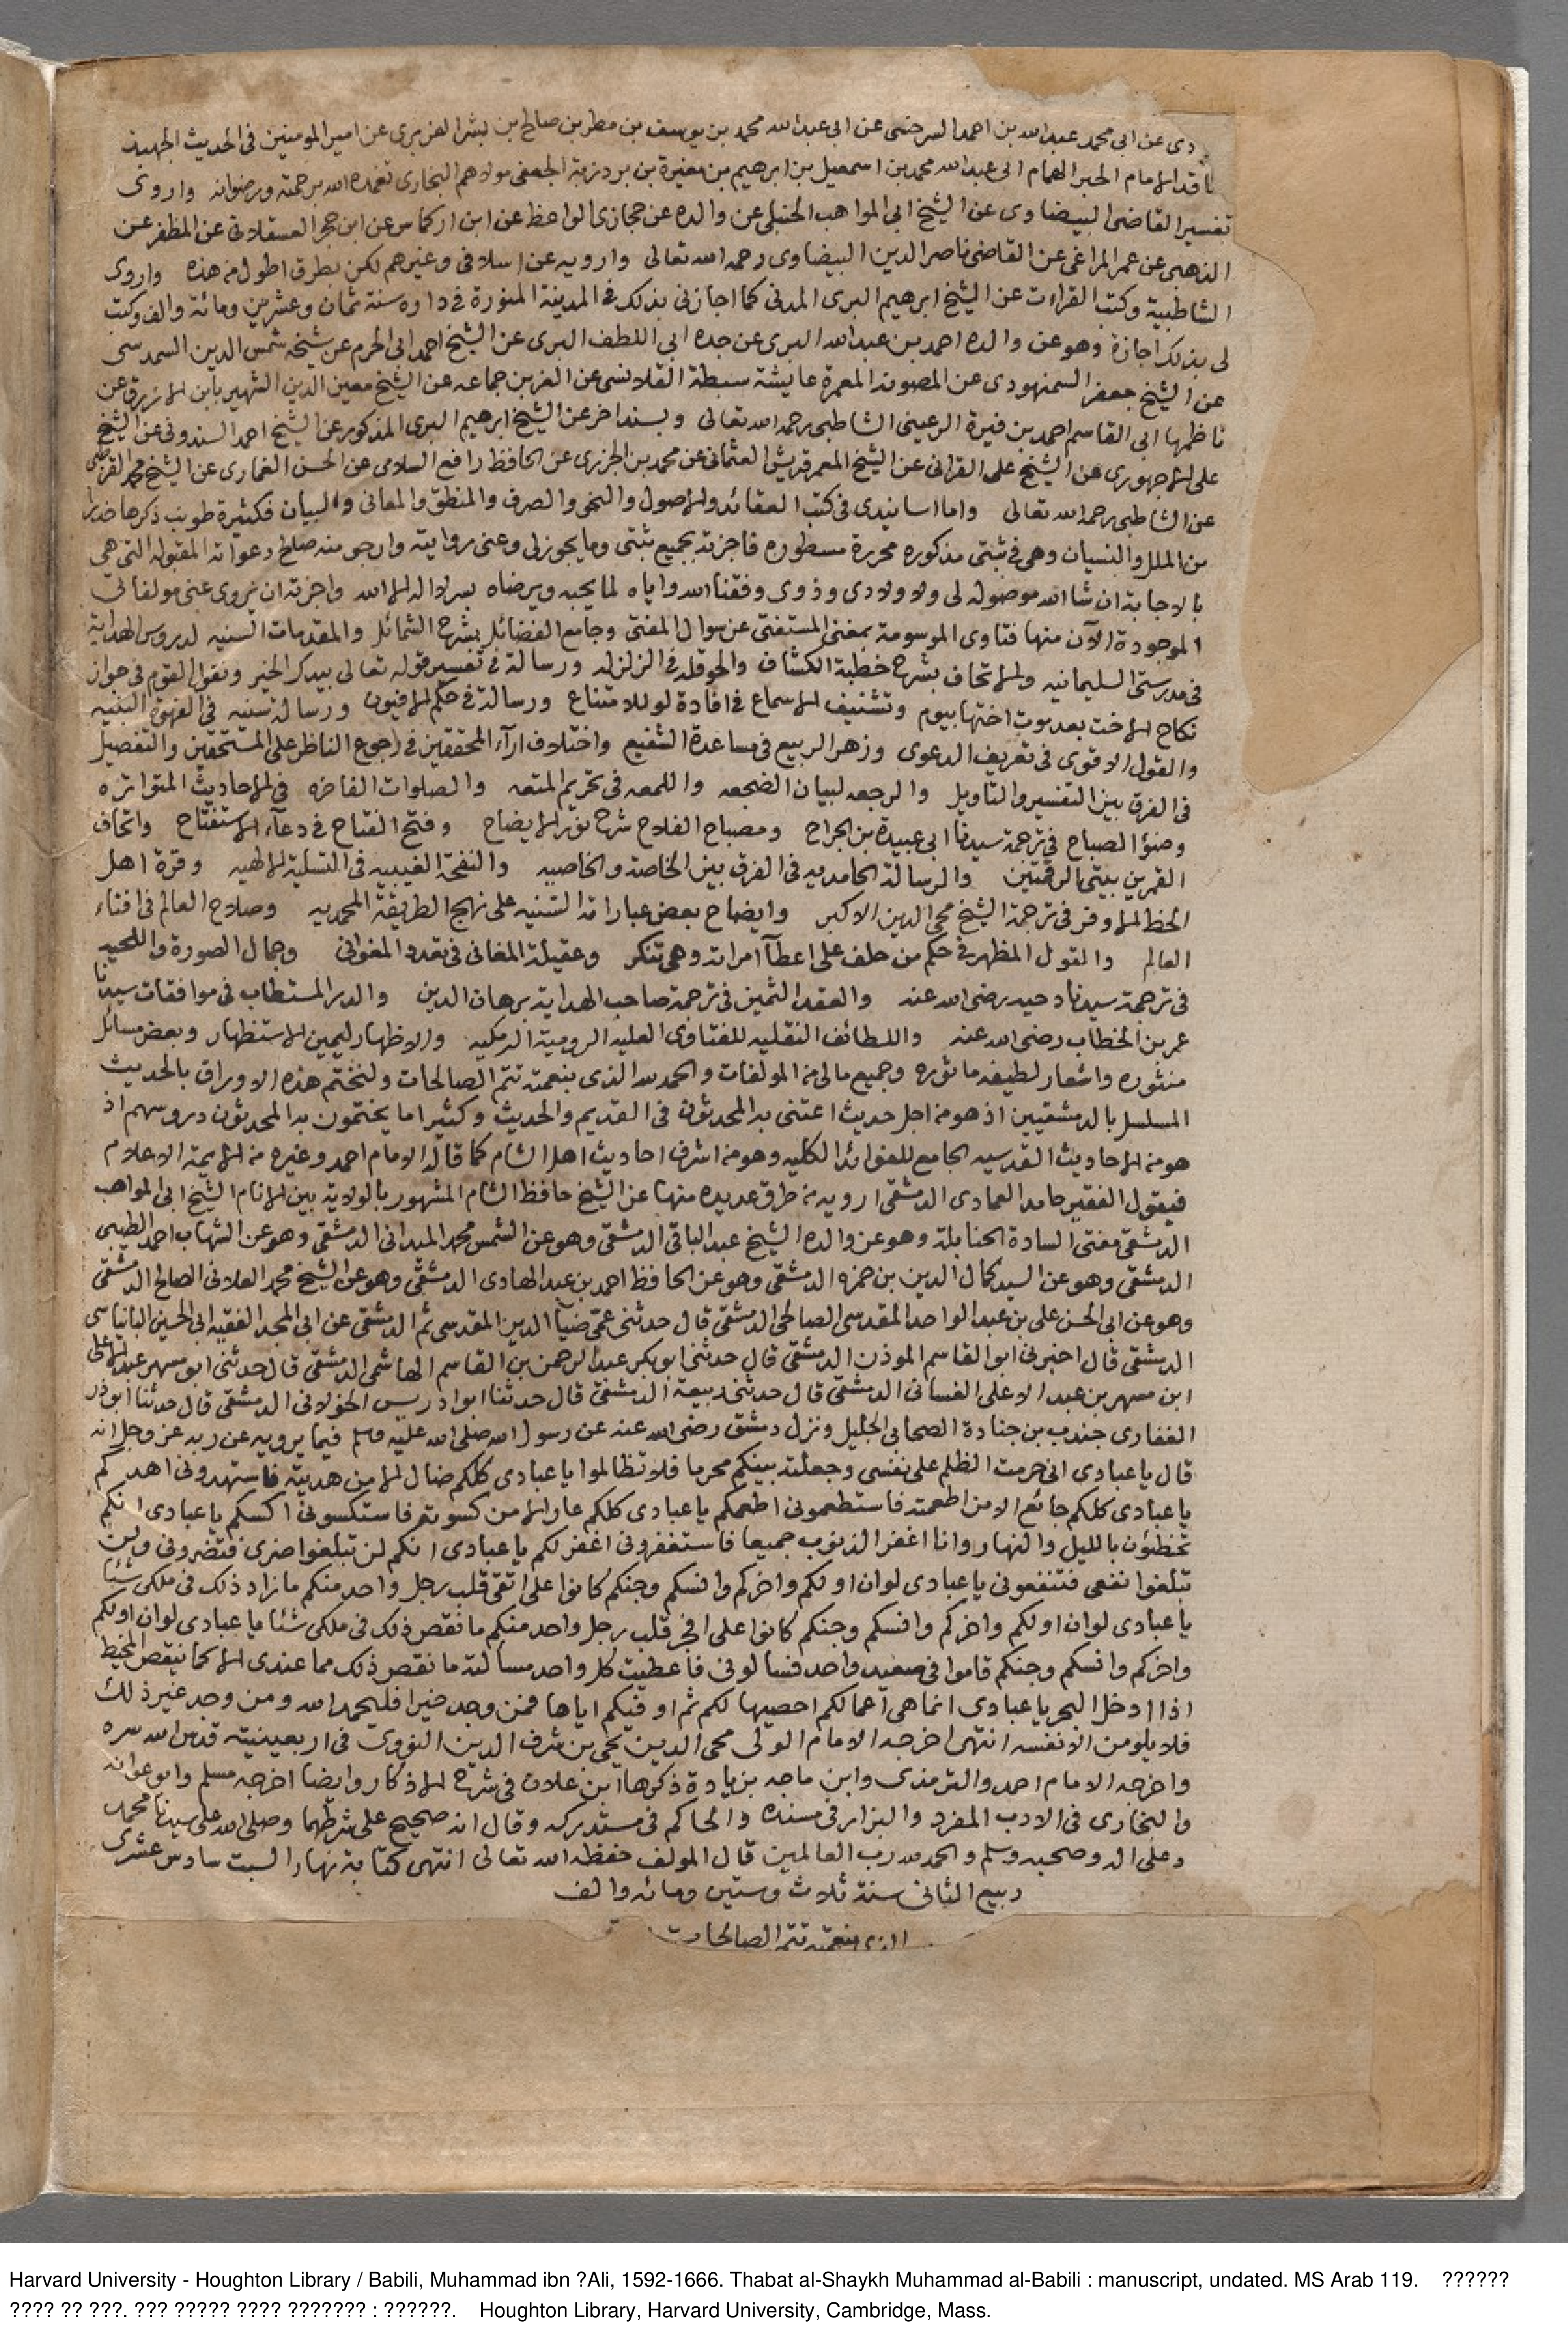 دى عن ابى محمد عبدالله بن احمد السرخسى عن ابى عبدالله محمد بن يوسف بن مطر بن صالح بن بشر الفربرى عن امير المومنين فى الحديث الجهبذ
ناقد الامام الحبر الهمام ابى عبدالله محمد بن اسمعيل بن ابرهيم بن مغيرة بن بردزبة الجعفى مولاهم البخارى تغمده الله برحمته ورضوانه واروى
تفسير القاضى البيضاوى عن الشيخ ابى المواهب الحنبلى عن والده عن حجازى الواعظ عن ابن اركماس عن ابن حجر العسقلانى عن المظفر عن
الذهبى عن عمر المراغى عن القاضى ناصر الدين البيضاوى رحمه الله تعالى وارويه عن اسلافى وغيرهم لكن بطرق اطول من هذه واروى
الشاطبية وكتب القراءت عن الشيخ ابرهيم البرى المدنى كما اجازنى بذلك فى المدينة المنورة فى داره سنة ثمان وعشرين ومائة والف وكتب
لى بذلك اجازة وهو عن والده احمد بن عبدالله البرى عن جده ابى اللطف البرى عن الشيخ احمد ابى الحرم عن شيخه شمس الدين السمدسى
عن الشيخ جعفر السمنهودى عن المصونة المعمرة عايشة سبطة القلانسى عن العز بن جماعه عن الشيخ معين الدين الشهير بابن الازرق عن
ناظمها ابى القاسم احمد بن فيرة الرعينى الشاطبى رحمه الله تعالى وبسند اخر عن الشيخ ابرهيم البرى المذكور عن الشيخ احمد السندونى عن الشيخ
على الاجهورى عن الشيخ على القرافى عن الشيخ المعمر قريش العثمانى عن محمد بن الجزرى عن الحافظ رافع السلامى عن الحسن الغمارى عن الشيخ محمد القرطبى
عن الشاطبى رحمه الله تعالى واما اسانيدى فى كتب العقائد والاصول والنحو والصرف والمنطق والمعانى والبيان فكثيرة طويت ذكرها حذرا
من الملل والنسيان وهى فى ثبتى مذكوره محررة مسطوره فاجزته بجميع ثبتى وما يجوز لى وعنى روايته وارجو منه صلح دعواته المقبوله التى هى
بالاجابة ان شا الله موصوله لى ولاولادى وذوى وفقنا الله واياه لما يحبه ويرضاه بسر لا اله الا الله واجزته ان يروى عنى مولفاتى
الموجودة الآن منها فتاوى الموسومة بمغنى المستفتى عن سوال المفتى وجامع الفضائل بشرح الشمائل والمقدمات السنيه لدروس الهداية
فى مدرستى السليمانيه والاتحاف بشرح خطبة الكشاف والحوقله فى الزلزله ورسالة فى تفسير قوله تعالى بيدك الخير ونقول القوم فى جواز
نكاح الاخت بعد موت اختها بيوم وتشنيف الاسماع فى افادة لو للامتناع ورسالة فى حكم الافيون ورسالة سنيه فى القهوة البنيه
والقول الاقوى فى تعريف الدعوى وزهر الربيع فى مساعدة الشفيع واختلاف ارآء المحققين فى رجوع الناظر على المستحقين والتفصيل
فى الفرق بين التفسير والتاويل والرجعه لبيان الضجعه واللمعه فى تحريم المتعه والصلوات الفاخره فى الاحاديث المتواتره
وضؤ الصباح فى ترجمة سيدنا ابى عبيدة بن الجراح ومصباح الفلاح شرح نور الايضاح وفتح الفتاح فى دعآء الاستفتاح واتحاف
القمرين ببيتى الرقمتين والرسالة الحامديه فى الفرق بين الخاصة والخاصيه والنفحة الغيبيه فى التسلية الالهيه وقرة اهل
الحظ الاوفر فى ترجمة الشيخ محى الدين الاكبر وايضاح بعض عباراته السنيه على نهج الطريقة المحمديه وصلاح العالم فى افتاء
العالم والقول المظهر فى حكم من حلف على اعطآ امراته وهى تنكر وعقيلة المغانى فى تعدد الغوانى وجمال الصورة واللحيه
فى ترجمة سيدنا دحيه رضى الله عنه والعقد الثمين فى ترجمة صاحب الهداية برهان الدين والدر المستطاب فى موافقات سيدنا
عمر بن الخطاب رضى الله عنه واللطائف النقليه للفتاوى العليه الرومية التركيه والاظهار ليمين الاستظهار وبعض مسائل
منثوره واشعار لطيفه ماثوره وجميع مالى من المولفات والحمد لله الذى بنعمته تتم الصالحات ولنختم هذه الاوراق بالحديث
المسلسل بالدمشقيين اذ هو من اجل حديث اعتنى به المحدثون فى القديم والحديث وكثيرا ما يختمون به المحدثون دروسهم اذ
هو من الاحاديث القدسيه الجامع للفوائد الكليه وهو من اشرف احاديث اهل الشام كما قاله الامام احمد وغيره من الايمة الاعلام
فيقول الفقير حامد العمادى الدمشقى ارويه من طرق عديده منها عن الشيخ حافظ الشام المشهور بالولاية بين الانام الشيخ ابى المواهب
الدمشقى مفتى السادة الحنابلة وهو عن والده الشيخ عبد الباقى الدمشقى وهو عن الشمس محمد الميدانى الدمشقى وهو عن الشهاب احمد الطيبى
الدمشقى وهو عن السيد كمال الدين بن حمزه الدمشقى وهو عن الحافظ احمد بن عبد الهادى الدمشقى وهو عن الشيخ محمد العلائى الصالح الدمشقى
وهو عن ابى الحسن على بن عبد الواحد المقدسى الصالحى الدمشقى قال حدثنى عمى ضيآ الدين المقدسى ثم الدمشقى عن ابى المجد الفقيه ابى الحسين البانياسى
الدمشقى قال اخبرنى ابو القاسم الموذن الدمشقى قال حدثنى ابو بكر عبد الرحمن بن القاسم الهاشمى الدمشقى قال حدثنى ابو مسهر عبد الاعلى
ابن مسهر بن عبد الاعلى الغسانى الدمشقى قال حدثنى ربيعة الدمشقى قال حدثنا ابو ادريس الخولانى الدمشقى قال حدثنا ابو ذر
الغفارى جندب بن جنادة الصحابى الجليل ونزل دمشق رضى الله عنه عن رسول الله صلى الله عليه وسلم فيما يرويه عن ربه عز وجل انه
قال يا عبادى انى حرمت الظلم على نفسى وجعلته بينكم محرما فلا تظالموا يا عبادى كلكم ضال الا من هديته فاستهدونى اهدكم
يا عبادى كلكم جائع الا من اطعمته فاستطعمونى اطعمكم يا عبادى كلكم عار الا من كسوته فاستكسونى اكسكم يا عبادى انكم
تخطئون بالليل والنهار وانا اغفر الذنوب جميعا فاستغفرونى اغفر لكم يا عبادى انكم لن تبلغوا ضرى فتضرونى ولن
تبلغوا نفعى فتنفعونى يا عبادى لو ان اولكم واخركم وانسكم وجنكم كانوا على اتقى قلب رجل واحد منكم ما زاد ذلك فى ملكى شئا
يا عبادى لو ان اولكم واخركم وانسكم وجنكم كانوا على افجر قلب رجل واحد منكم ما نقص ذلك فى ملكى شئا يا عبادى لو ان اولكم
واخركم وانسكم وجنكم قاموا فى صعيد واحد فسالونى فاعطيت كل واحد مسالته ما نقص ذلك مما عندى الا كما ينقص المخيط
اذا ادخل البحر يا عبادى انما هى اعمالكم احصيها لكم ثم اوفيكم اياها فمن وجد خيرا فليحمد الله ومن وجد غير ذلك
فلا يلومن الا نفسه انتهى اخرجه الامام الولى محى الدين يحيى بن شرف الدين النووى فى اربعينيته قدس الله سره
واخرجه الامام احمد والترمذى وابن ماجه بزيادة ذكرها ابن علان فى شرح الاذكار وايضا اخرجه مسلم وابو عوانه
والبخارى فى الادب المفرد والبزار فى مسنده والحاكم فى مستدركه وقال انه صحيح على شرطهما وصلى الله على سيدنا محمد
وعلى اله وصحبه وسلم والحمد لله رب العالمين قال المولف حفظه الله تعالى انتهى كتابة نهار السبت سادس عشرى
ربيع الثانى سنة ثلاث وستين ومائه والف
الذى بنعمته تتم الصالحات
Harvard University - Houghton Library / Babili, Muhammad ibn ?Ali, 1592-1666. Thabat al-Shaykh Muhammad al-Babili : manuscript, undated. MS Arab 119. ??????
???? ?? ???. ??? ????? ???? ??????? : ??????. Houghton Library, Harvard University, Cambridge, Mass.